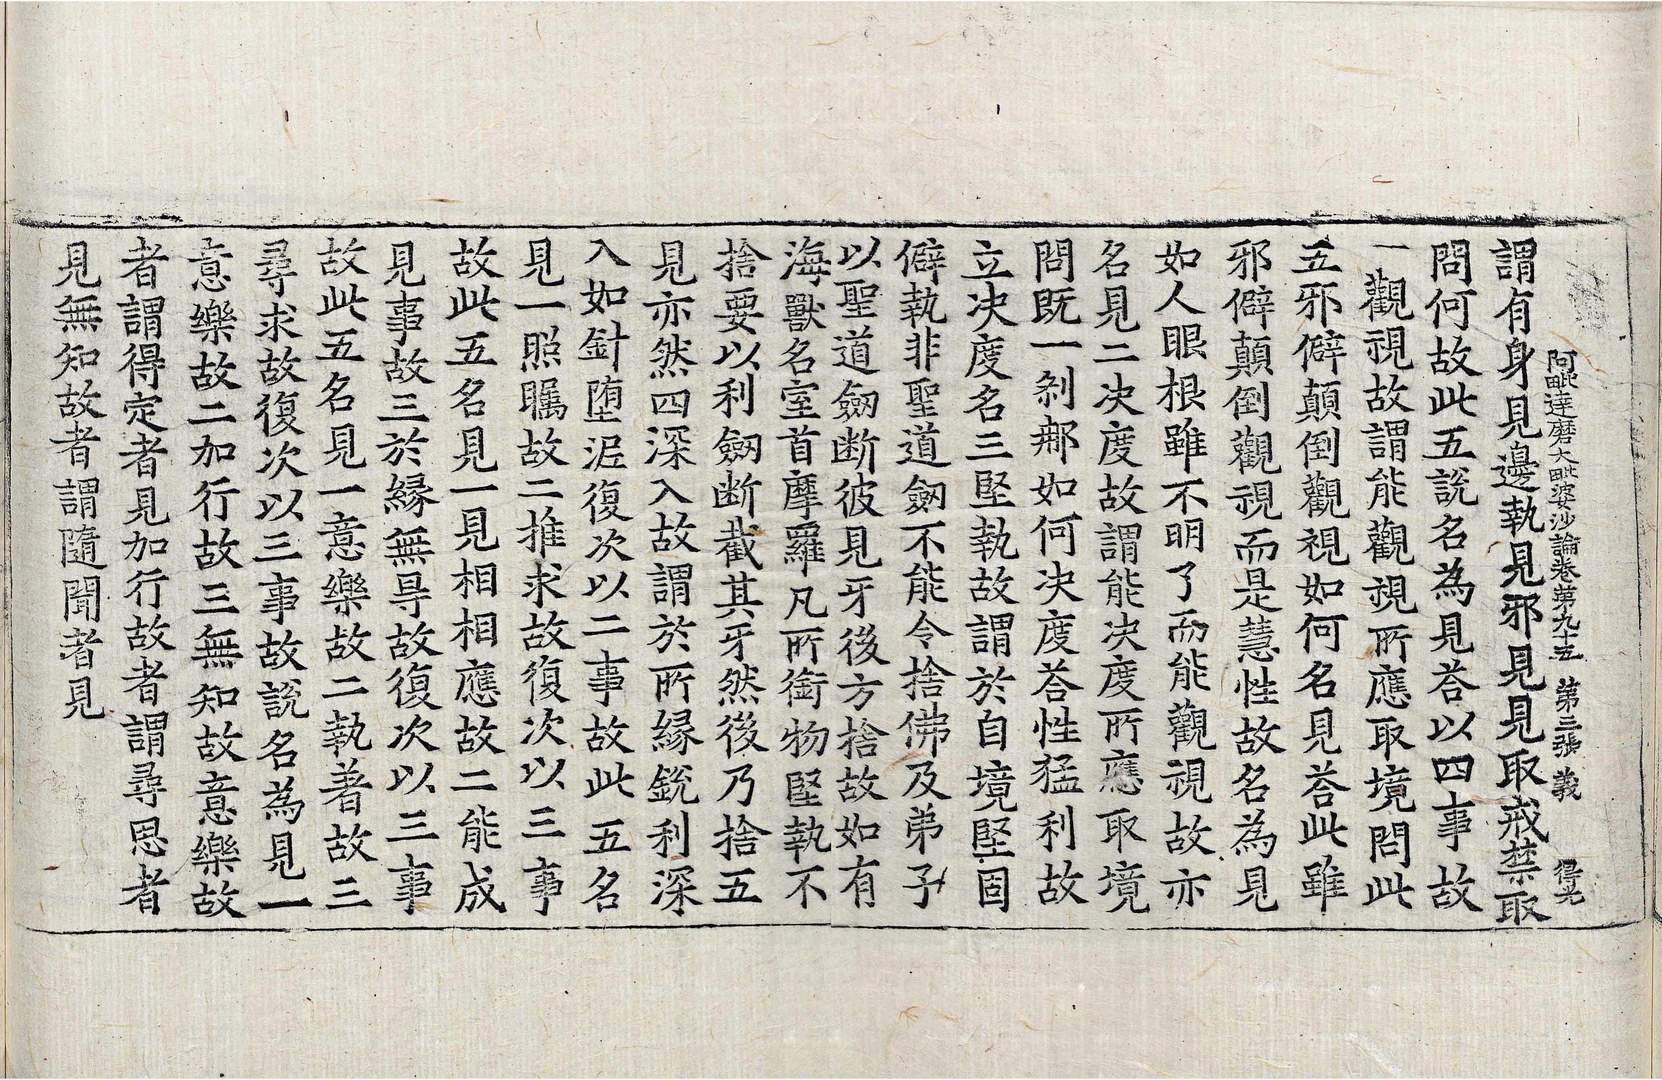 阿毗達磨大毗婆沙論卷第九十五 第三張 義 得光
謂有身見邊執見邪見見取戒禁取
問何故此五說名為見荅以四事故
一觀視故謂能觀視所應取境問此
五邪僻顛倒觀視如何名見荅此雖
邪僻顛倒觀視而是慧性故名為見
如人眼根雖不明了而能觀視故亦
名見二決度故謂能決度所應取境
問既一剎那如何決度荅性猛利故
立決度名三堅執故謂於自境堅固
僻執非聖道劒不能令捨佛及弟子
以聖道劒断彼見牙後方捨故如有
海獸名室首摩羅凡所銜物堅執不
捨要以利劒断截其牙然後乃捨五
見亦然四深入故謂於所縁銳利深
入如針墮泥復次以二事故此五名
見一照矚故二推求故復次以三事
故此五名見一見相相應故二能成
見事故三於縁無㝵故復次以三事
故此五名見一意樂故二執著故三
尋求故復次以三事故說名為見一
意樂故二加行故三無知故意樂故
者謂得定者見加行故者謂尋思者
見無知故者謂隨聞者見